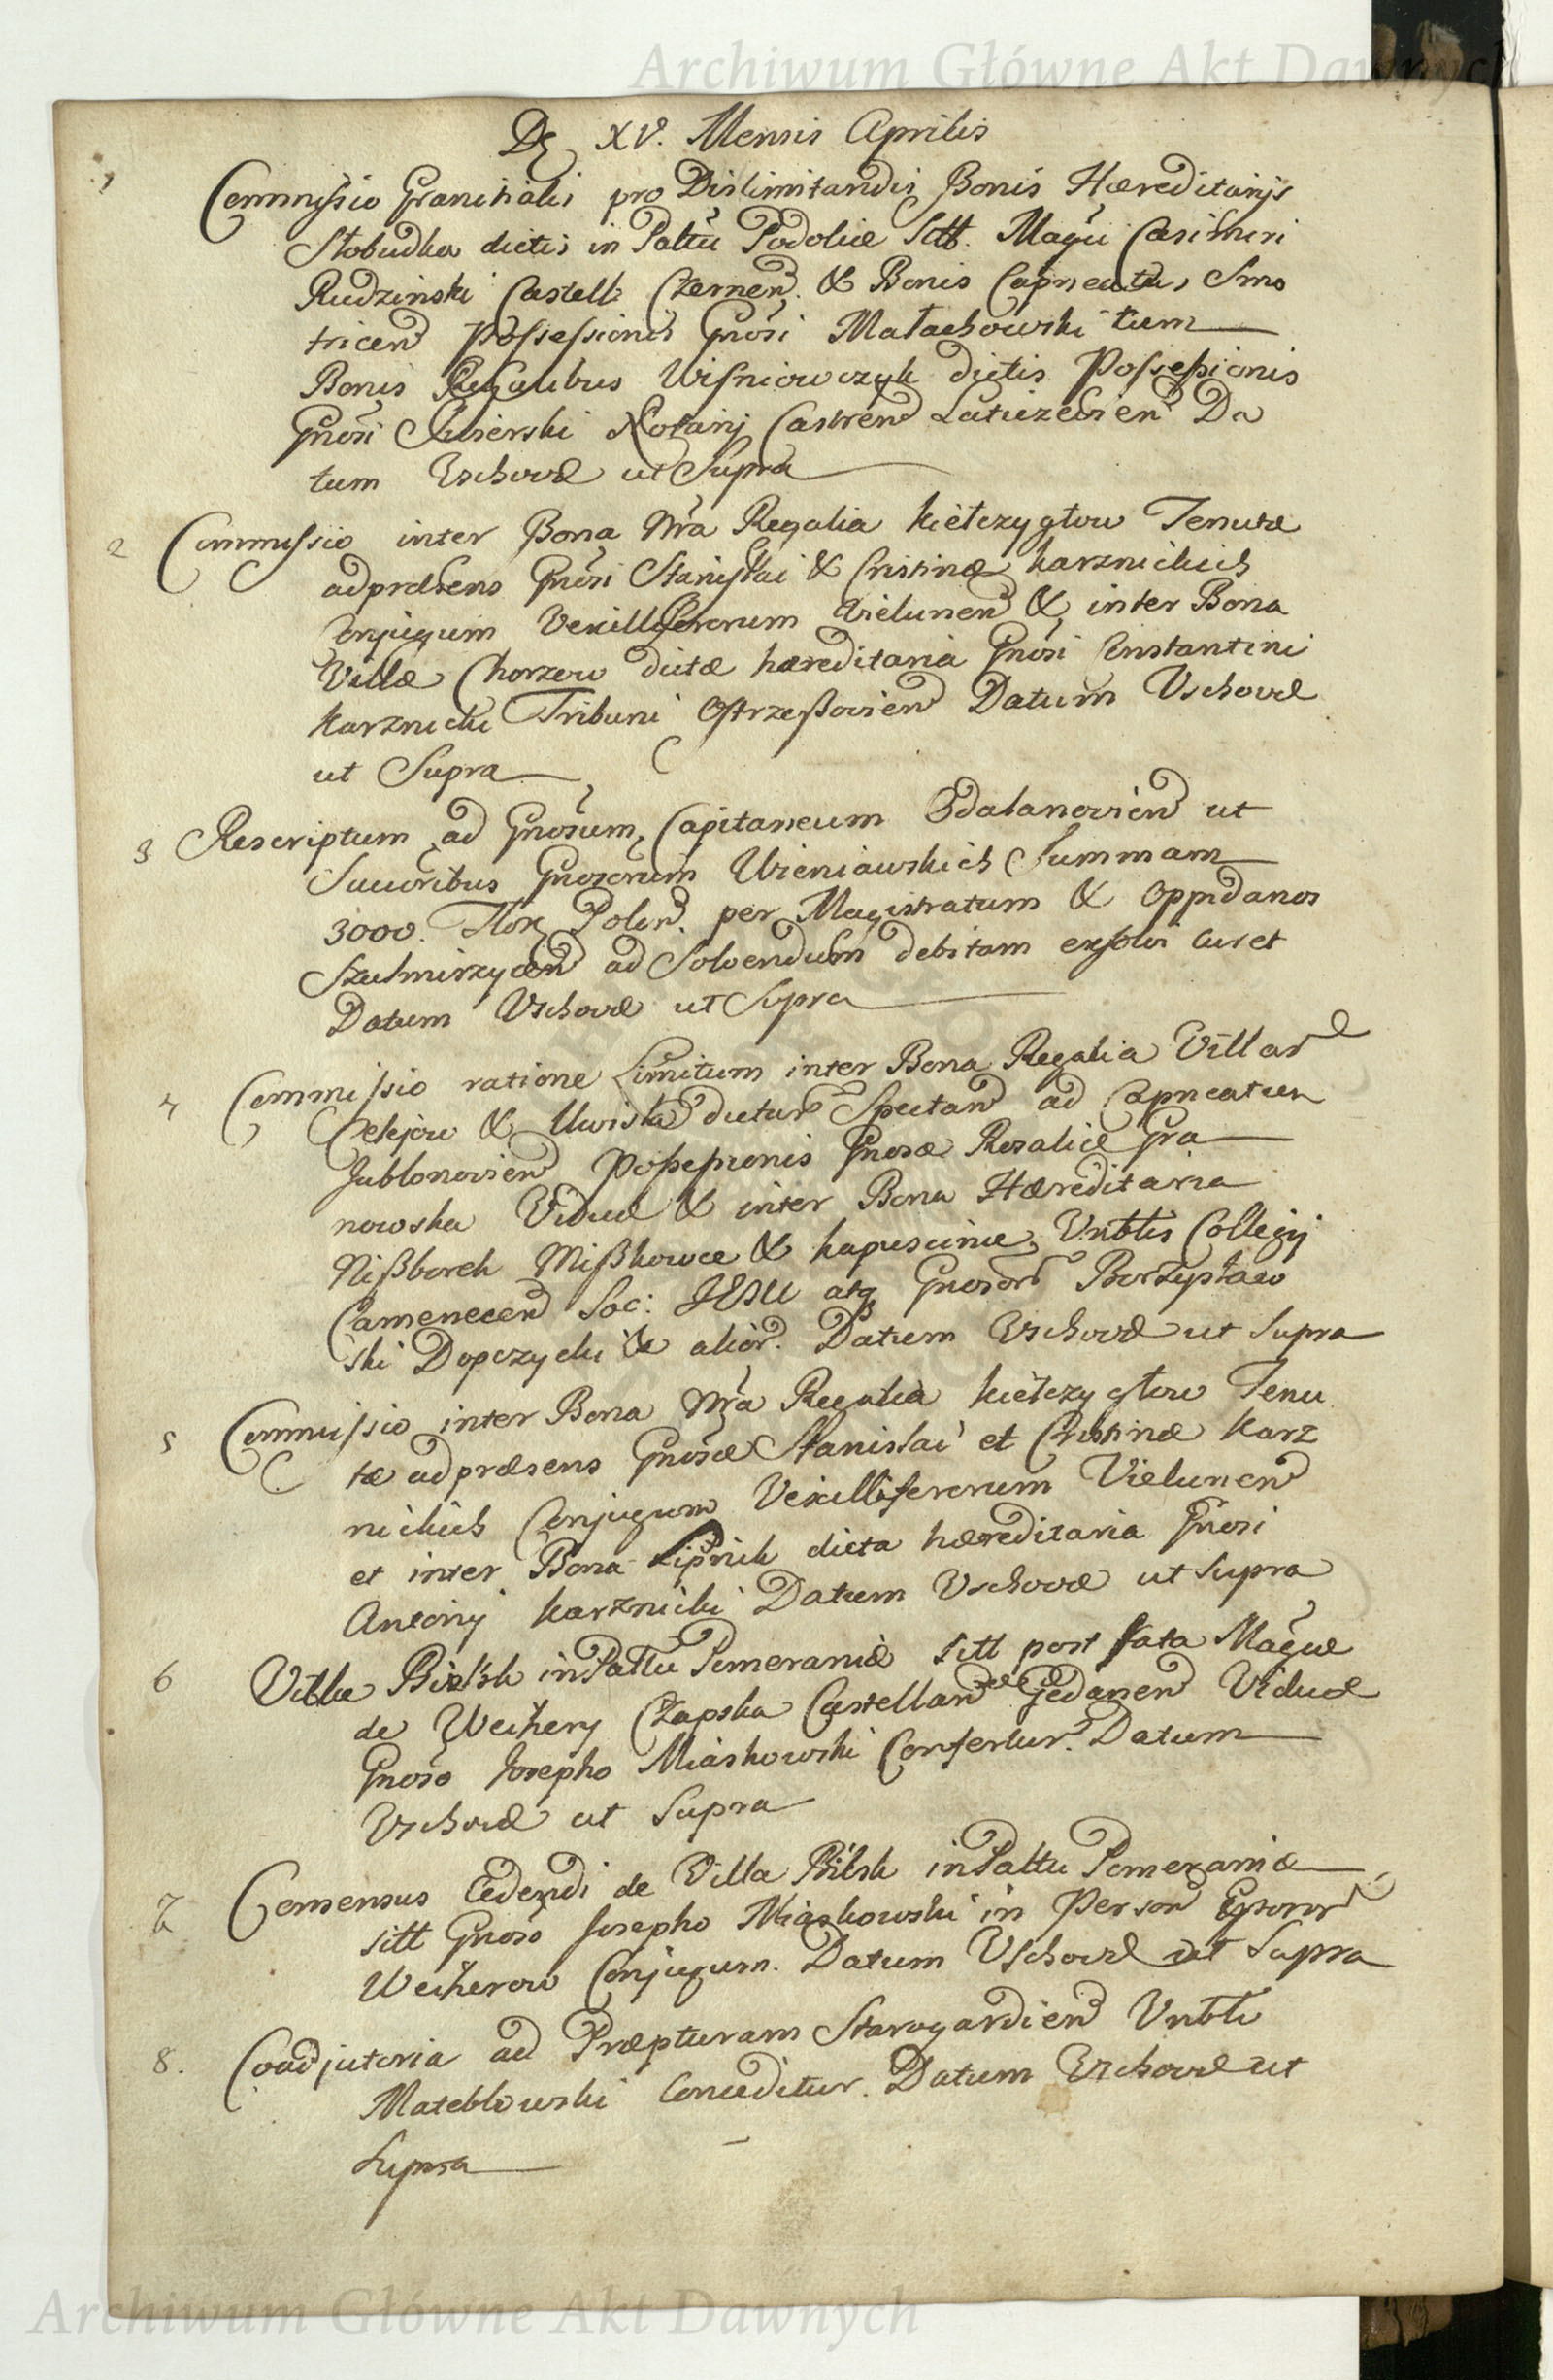 Archiwum Główne Akt Dawnych
De XV. Mensis Aprilis
1 Commissio Granitialis pro Dislimitandis Bonis Hæreditarijs
Słobudka dictis in Pałtu Podoliæ Sitt. Magci Casimiri
Rudzinski Castelli Czernen. & Bonis Capneatus Smo
tricen Possessionis Gnosi Małachowski tum
Bonis Regalibus Wiśniowczyk dictis Possessionis
Gnosi Notarij Castren Laticzovien Da
tum Vschovæ ut Supra
2 Commissio inter Bona Nra Regalia Kiełczygłow Tenutæ
adpræsens Gnosi Stanisłai & Cristinæ Karznickich
Conjugum Vexilliferorum Vielunen & inter Bona
Villæ Chorzew dictæ hæreditaria Gnosi Constantini
Karznicki Tribuni Ostrzeßovien Datum Vschovæ
ut Supra
3 Rescriptum ad Gnosum Capitaneum Odalanovien ut
Succoribus Gnosorum Wieniawskich Summam
3000. Flor Polon. per Magistratum & Oppidanos
Szulmirzycen ad Solvendum debitam exsolvi curet
Datum Vschovæ ut Supra
4 Commissio ratione Limitum inter Bona Regalia Villar
Celejow & Uwisła dictar Spectan ad Capneatum
Jablonovien Possessionis Gnosæ Rosaliæ Gra
nowska Viduæ & inter Bona Hæreditaria
Nißborek Mißkowce & Kapuscince Vnblis Collegij
Camenecen Soc: JESU atq Gnosor Borzysław
ski Dopczycki & alior. Datum Vschovæ ut Supra
5 Commissio inter Bona Nra Regalia Kiełczygłow Tenu
tæ adpræsens Gnosæ Stanislai et Cristinæ Karz
nickich Conjugum Vexilliferorum Vielunen
et inter Bona Lipnik dicta hæreditaria Gnosi
Antonij Karznicki Datum Vschovæ ut Supra
6 Villa Bielsk in Pałtu Pomeraniæ sitt post fata Magcæ
de Weÿhery Czapska Castellan Gedanen Viduæ
Gnoso Josepho Miaskowski Confertur. Datum
Vschovæ ut Supra
7 Consensus Cedendi de Villa Bilsk in Pałtu Pomeraniæ
sitt Gnoso Josepho Miaskowski in Person Gnosor
Weÿherow Conjugum. Datum Vschovæ ut Supra
8. Coadjutoria ad Præpturam Starogardien Vnbli
Mateblowski Conceditur. Datum Vschovæ ut
Supra
Archiwum Główne Akt Dawnych